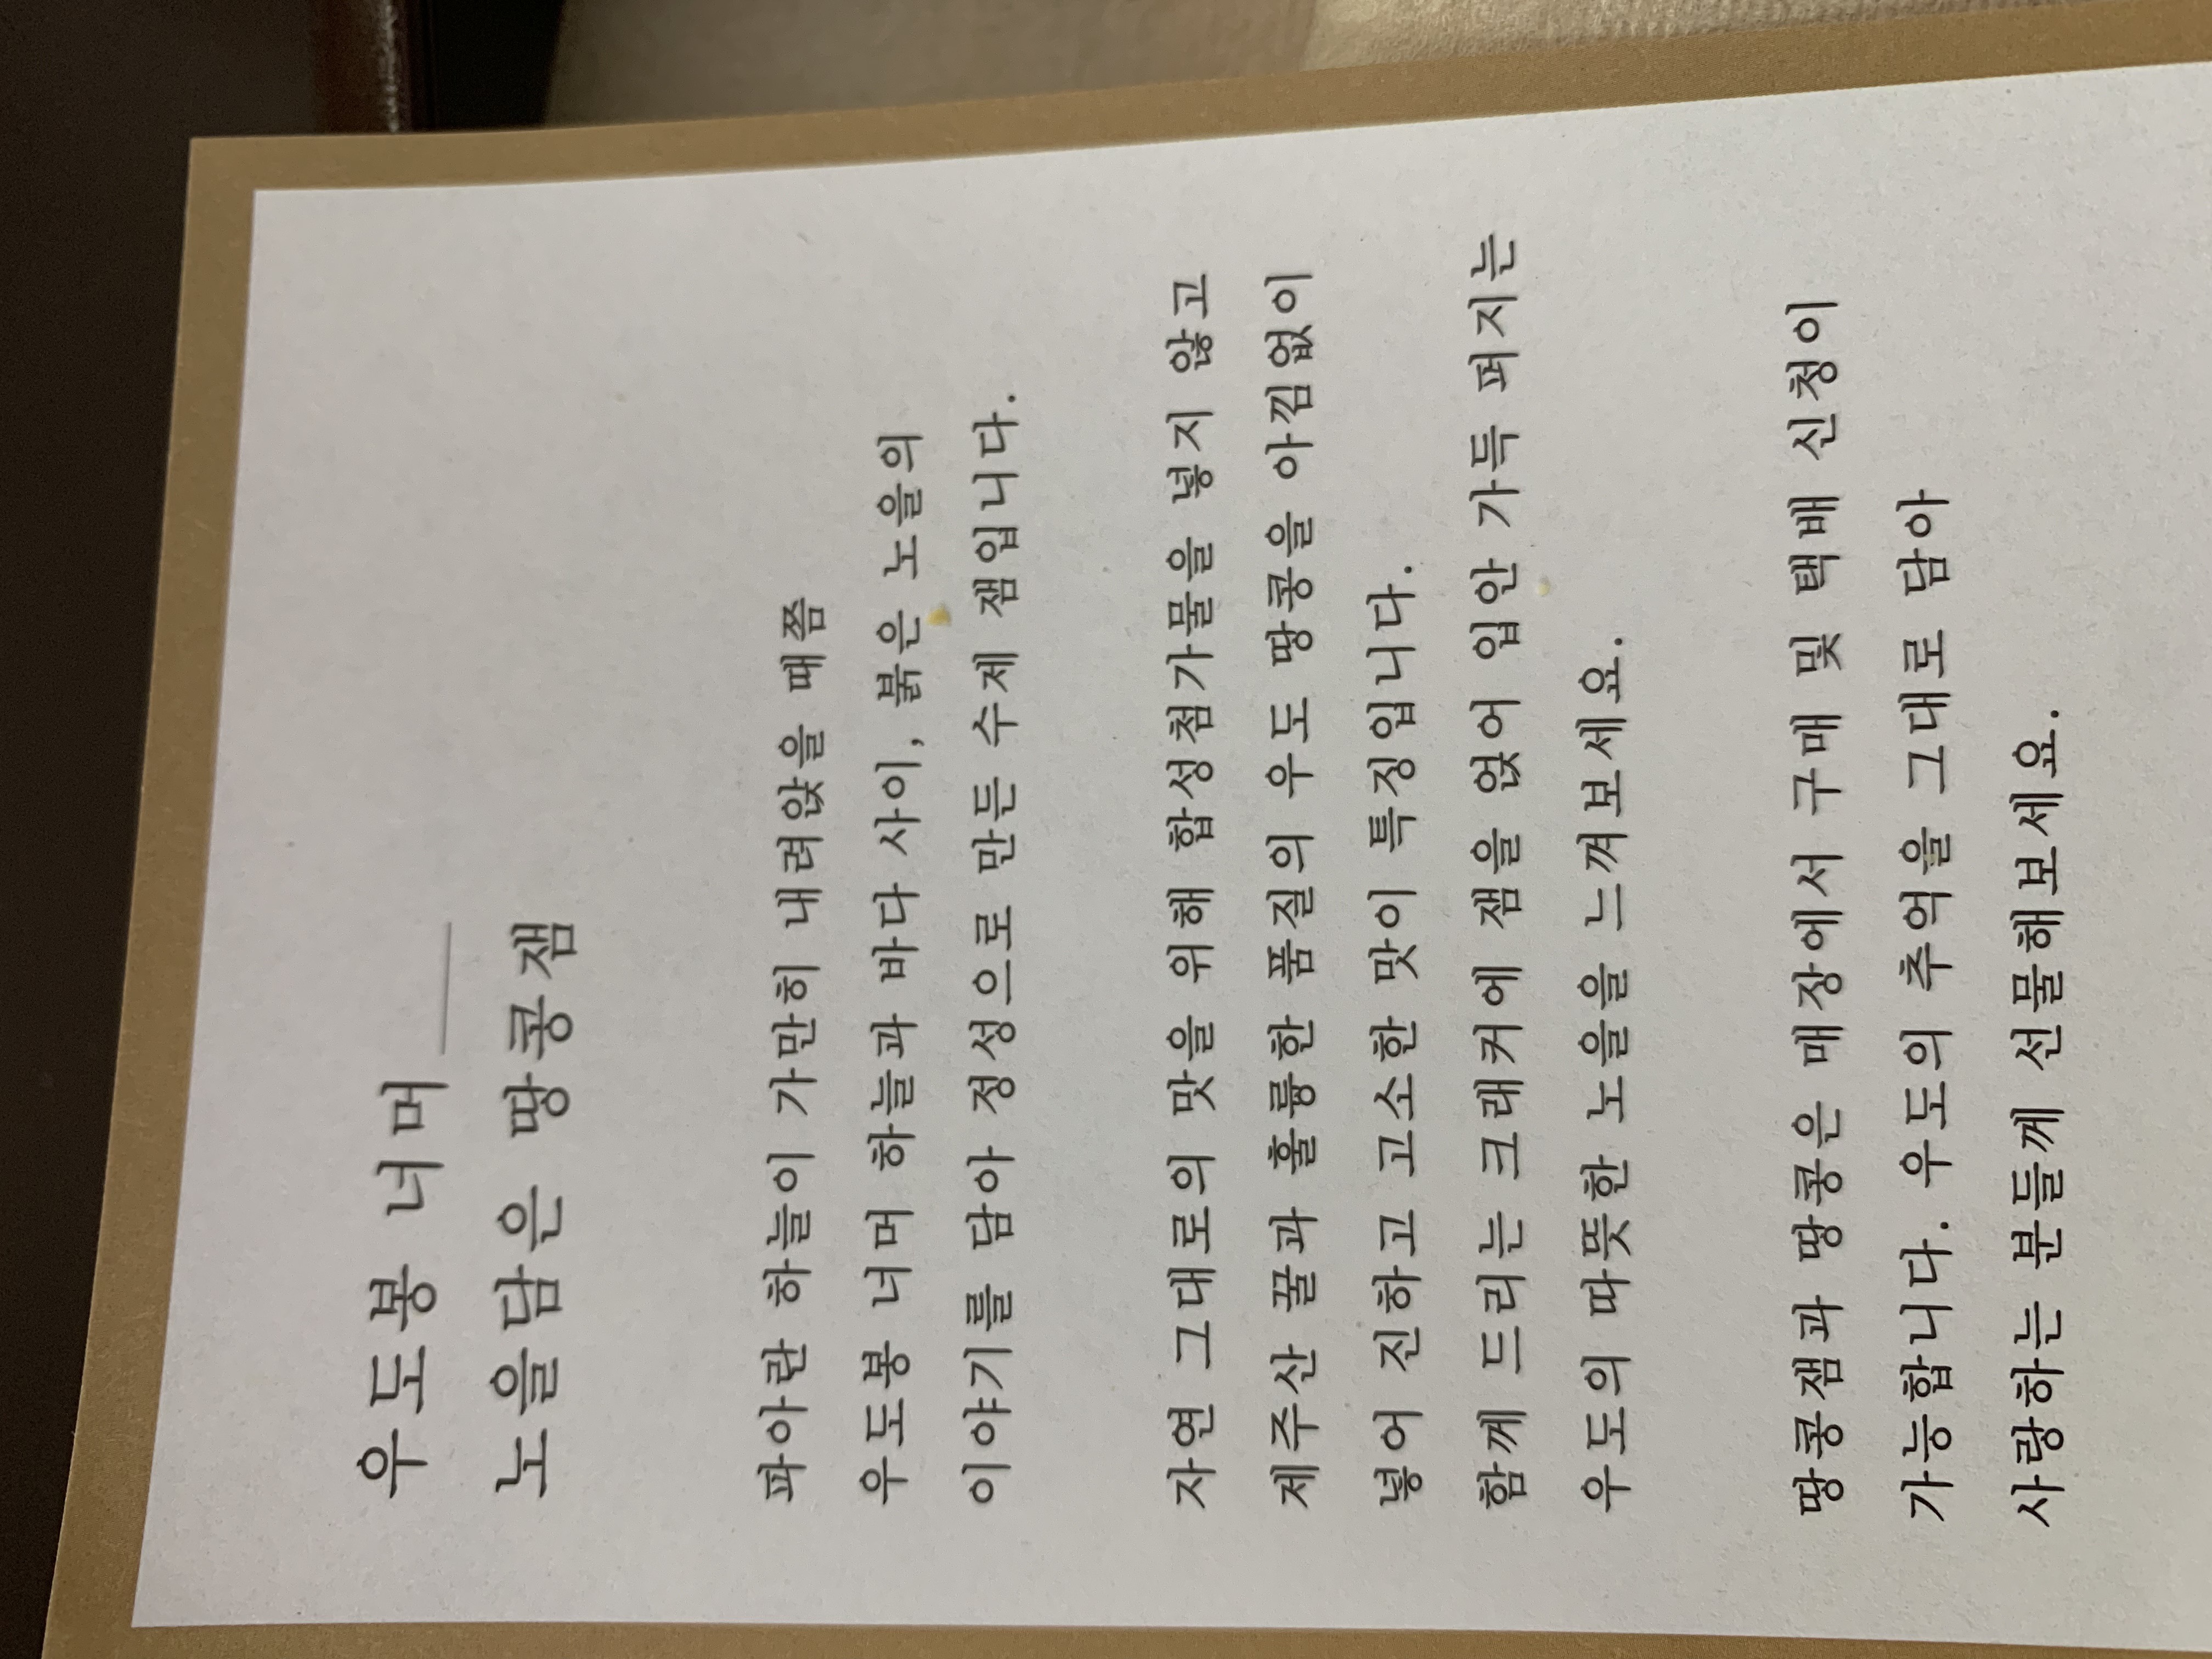 우도봉 너머
노을담은 땅콩잼
파아란 하늘이 가만히 내려앉을 때쯤
우도봉 너머 하늘과 바다 사이, 붉은 노을의
이야기를 담아 정성으로 만든 수제 잼입니다.
자연 그대로의 맛을 위해 합성첨가물을 넣지 않고
제주산 꿀과 훌륭한 품질의 우도 땅콩을 아낌없이
넣어 진하고 고소한 맛이 특징입니다.
함께 드리는 크래커에 잼을 얹어 입안 가득 퍼지는
우도의 따뜻한 노을을 느껴보세요.
땅콩잼과 땅콩은 매장에서 구매 및 택배 신청이
가능합니다. 우도의 추억을 그대로 담아
사랑하는 분들께 선물해보세요.